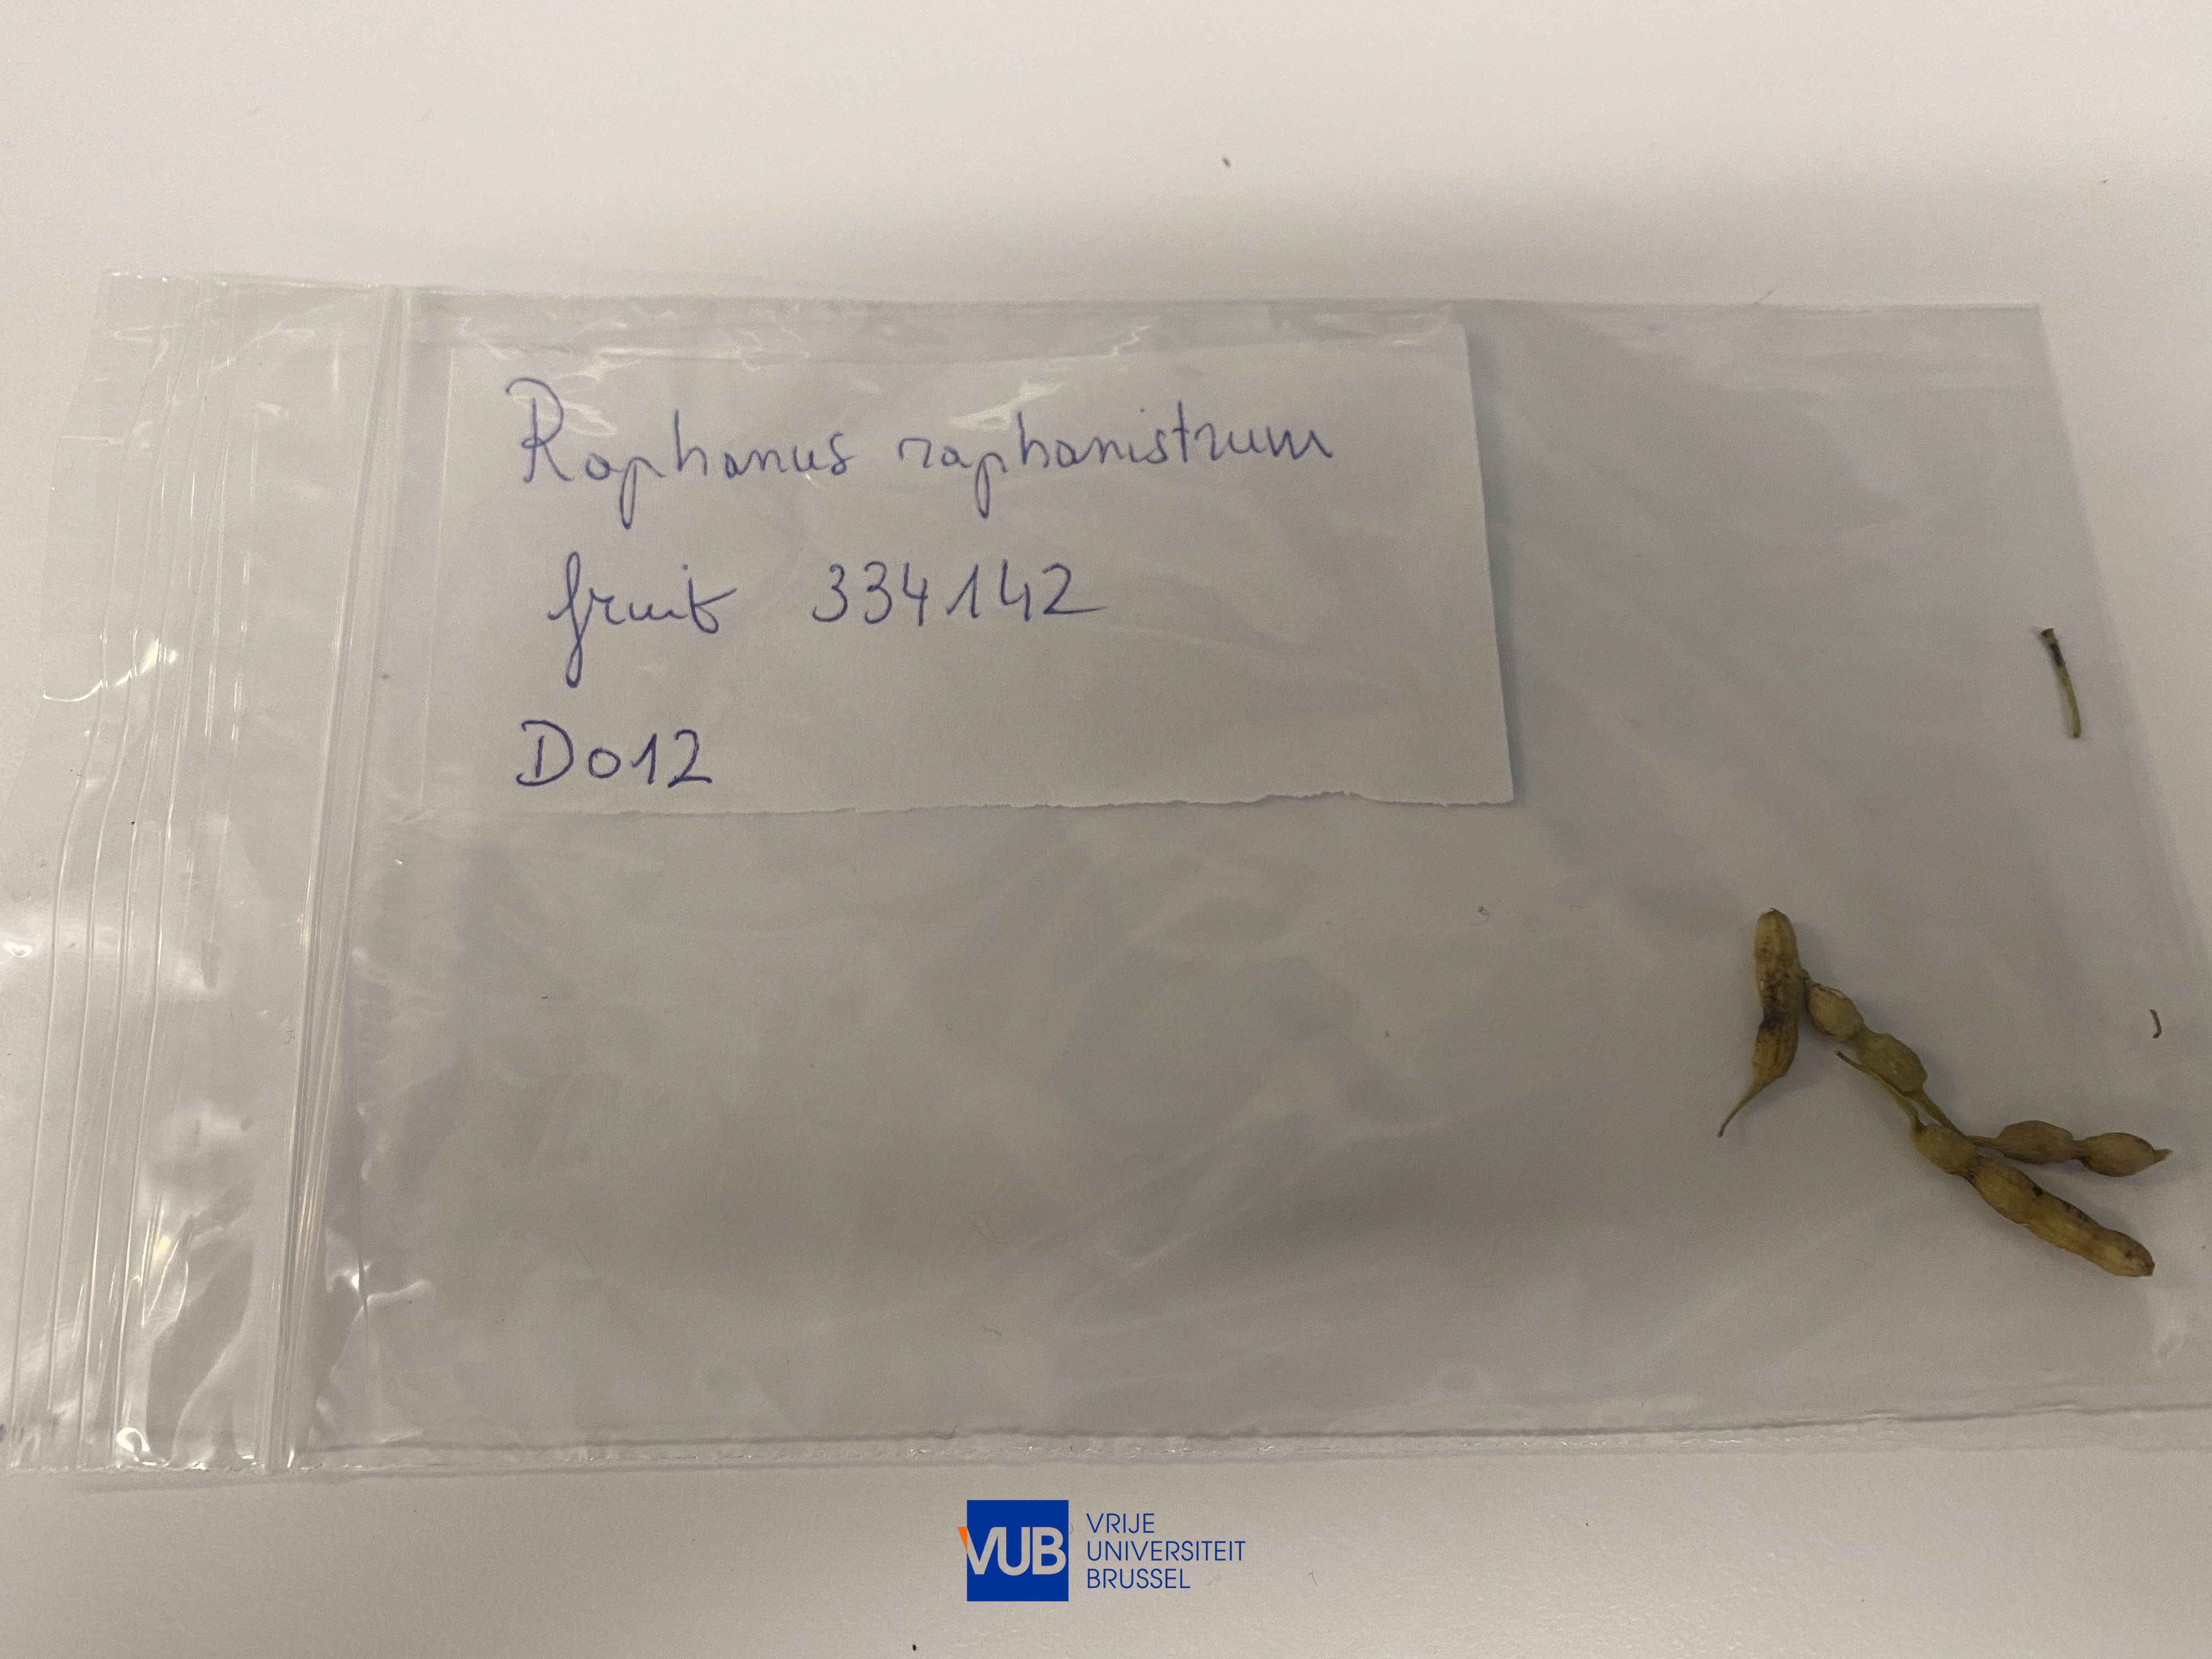 Raphanus raphanistrum
fruit 334142
D012
VUB
VRIJE
UNIVERSITEIT
BRUSSEL